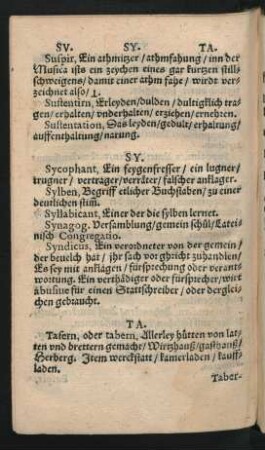 SV. SY. TA.
Suspir, Ein athmitzer / athmfahung / inn der
Musica ists ein zeychen eines gar kurtzen still-
schweigens / damit einer athm fahe / wirdt ver-
zeichnet also /
Sustentirn, Erleyden / dulden / dultigklich tra-
gen / erhalten / vnderhalten / erziehen / ernehren.
Sustentation, Das leyden / gedult / erhaltung /
auffenthaltung / narung.
SY.
Sycophant, Ein feygenfresser / ein lugner /
trugner / vertrager / verräter / falscher anklager.
Sylben, Begriff etlicher Buchstaben / zu einer
deutlichen stim̃.
Syllabicant, Einer der die sylben lernet.
Synagog. Versamblung / gemein schůl / Latei-
nisch Congregatio.
Syndicus, Ein verordneter von der gemein /
der beuelch hat / ihr sach vor ghricht zuhandlen /
Es sey mit anklagen / fürsprechung oder verant-
wortung. Ein verthädiger oder fürsprecher / wirt
äbusiue für einen Stattschreiber / oder derglei-
chen gebraucht.
TA.
Tafern, oder tabern, Allerley hütten von lat-
ten vnd brettern gemacht / Wirtzhauß / gasthauß /
Herberg. Item werckstatt / kamerladen / kauff-
laden.
Taber-